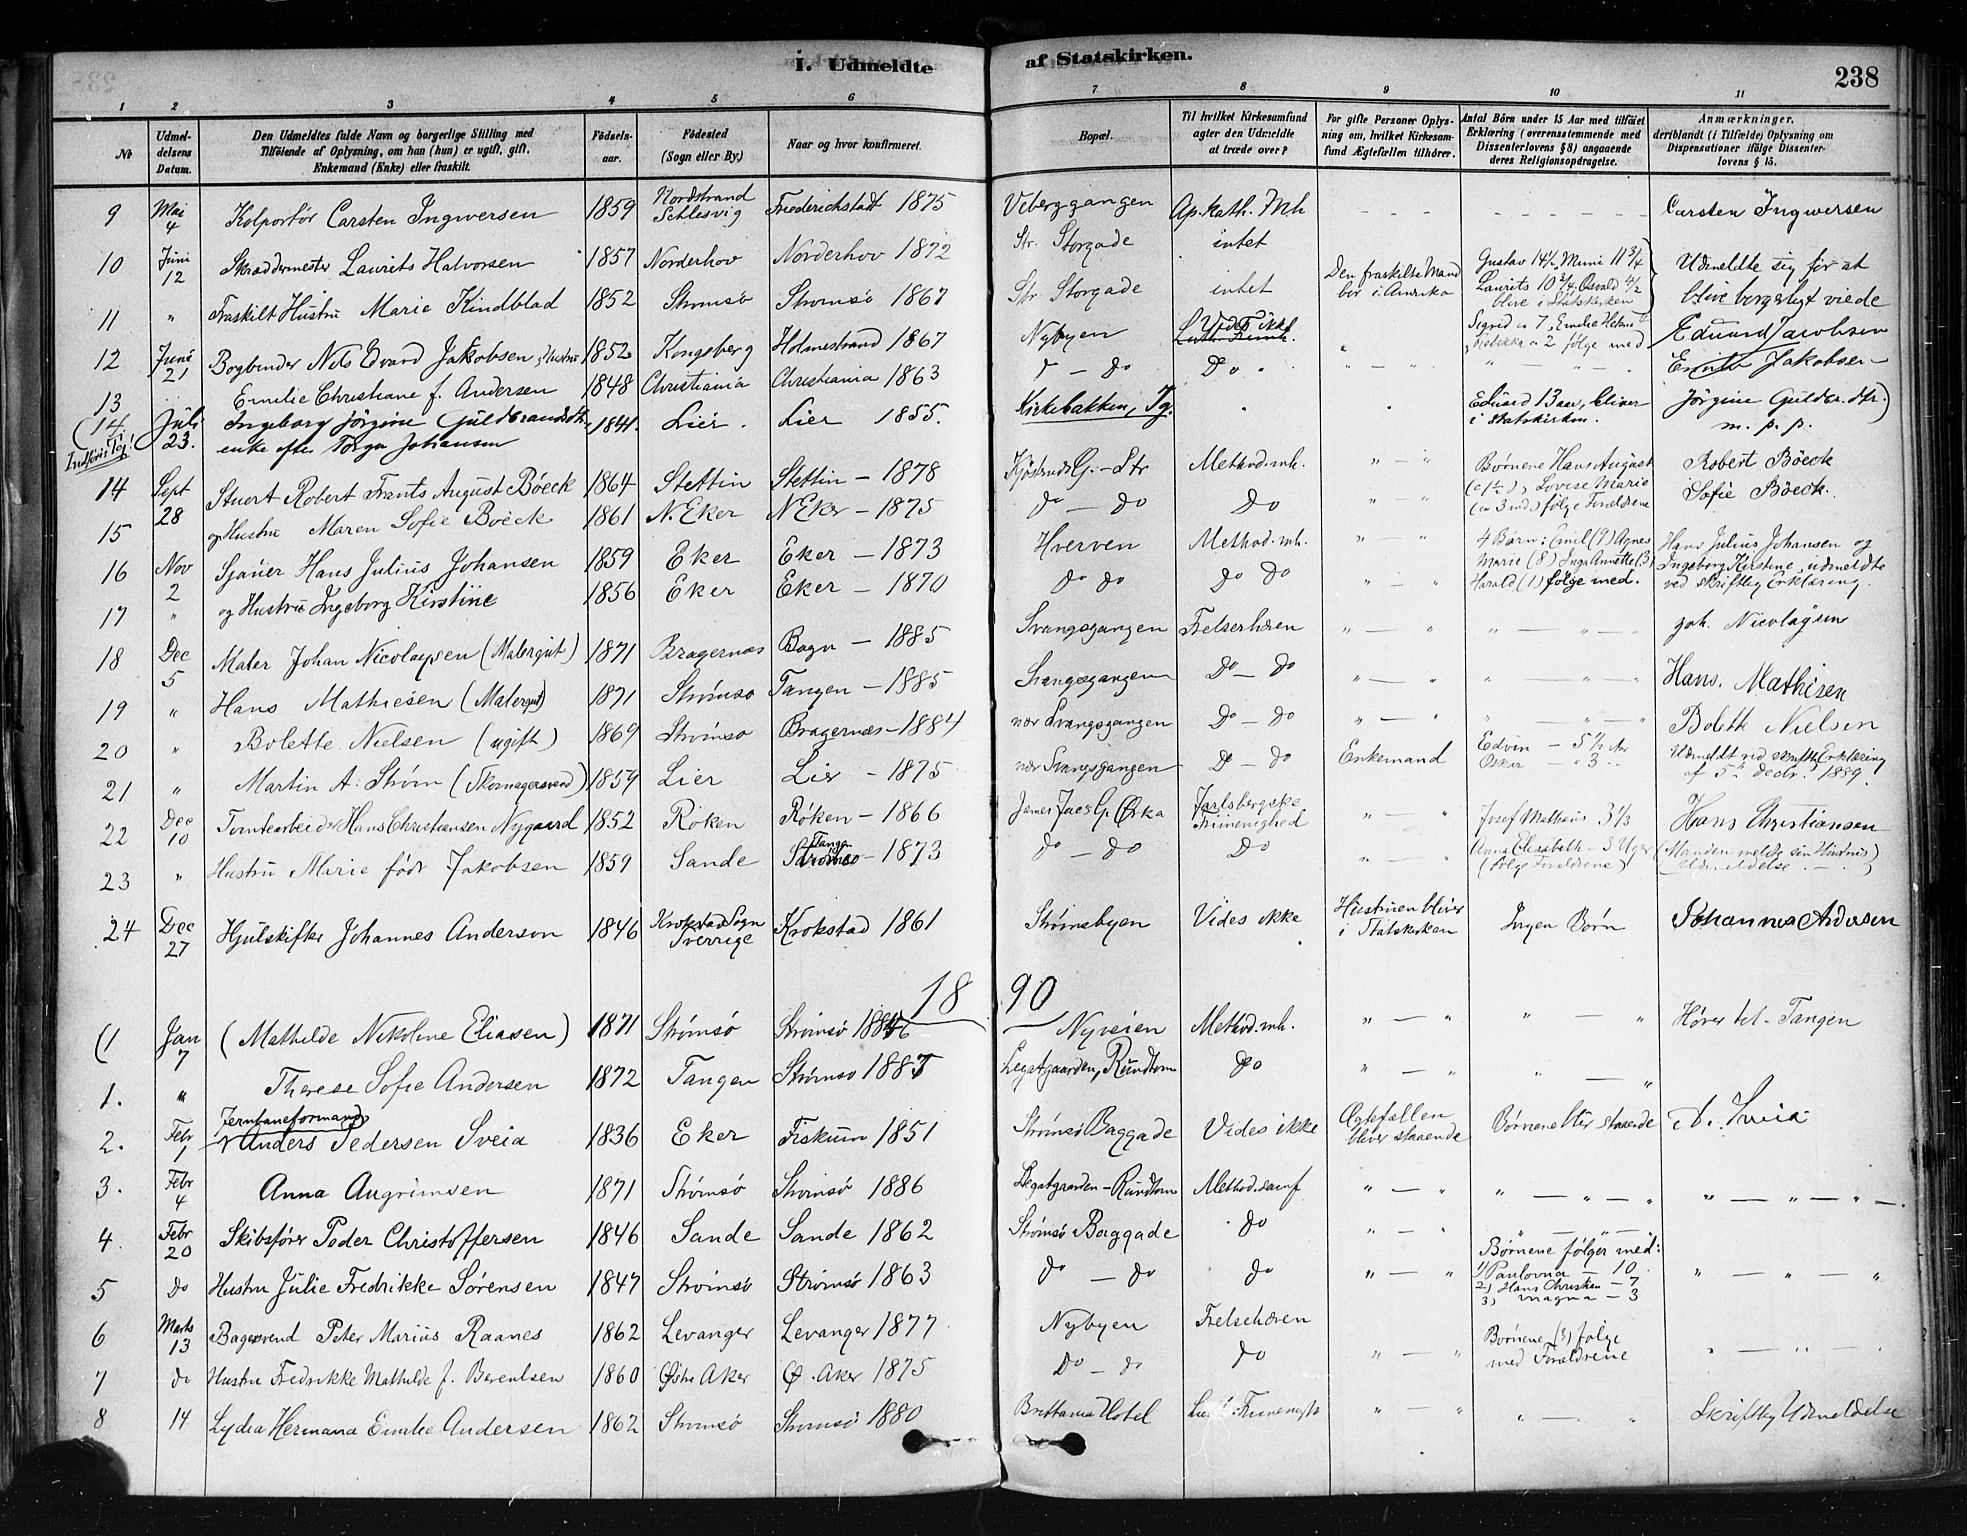 I. Udmeldte af Statskirken.
238
1 2 3 4 5 6 7 8 9 10 11
No
Udmeldelsens Datum.
Den Udmeldtes fulde Navn og borgerlige Stilling med Tilföiende af Oplysning, om han (hun) er ugift, gift, Enkemand (Enke) eller fraskilt.
Födselsaar.
Födested (Sogn eller By.)
Naar og hvor konfirmeret.
Bopæl.
Til hvilket Kirkesamfund agter den Udmeldte at træde over?
For gifte Personer Oplysning om, hvilket Kirkesamfund Ægtefællen tilhörer.
Antal Börn under 15 Aar med tilföiet Erklæring (overensstemmende med Dissenterlovens § 8) angaaende deres Religionsopdragelse.
Anmærkninger, deriblandt (i Tilfælde) Oplysning om Dispensationer ifölge Dissenterlovens § 15.
9 Mai 4 Kolportör Carsten Ingwersen 1859 Nordstrand Schlesvig Friederichstadt 1875 Veberggangen Ap. kath. Mh Carsten Ingwersen
10 Juni 12 Skræddermester Laurits Halvorsen 1857 Norderhov Norderhov 1872 Str. Storgade intet Udmeldte sig for at
11 " Fraskilt Hustru Marie Kindblad 1852 Strømsø Strømsø 1867 Str Storgade intet Den fraskilte Mand bor i Amerika Gustav 14½, Mimi 11¾ Laurits 10¾, Osvald 4½ blive i Statskirken blive borgerligt viede
12 Juni 21 Bogbinder Nils Edvard Jakobsen, Hustru 1852 Kongsberg Holmestrand 1867 Nybyen Vides ikke Sigrid 7, Emilie Helene 2 følge med Eduard Jacobsen
13 Emilie Christiane f. Andersen 1848 Christiania Christiania 1863 Do - Do Do " Emilie Jakobsen
(14 Indføres Tg! Juli 23. Ingeborg Jörgine Guldbrandsdtr. enke efter Torger Johansen 1841. Lier. Lier 1855. Kirkebakken, Tg. Eduard 13 aar, bliver i statskirken. Jörgine Guldbr. dtr.) m. p. p.
14 Sept 28 Stuert Robert Frants August Böeck 1864 Stettin Stettin - 1878 G. - Str Method. mh. Børnene Hans August (c 1½), Lovise Marie Robert Böeck
15 og Hustru Maren Sofie Boeck 1861 N. Eker N Eker - 1875 Do - Do Do (ca 3 md) følge Forældrene Sofie Böeck.
16 Nov 2 Sjauer Hans Julius Johansen 1859 Eker Eker - 1873 Hverven Method. mh. 4 Børn: Emil (9) Agnes Marie (8) Inga Annette (3) Hans Julius Johansen og Ingeborg Kirstine, udmeldte
17 " og Hustru Ingeborg Kirstine 1856 Eker Eker - 1870 Do Do Do Do Harald (1) følge med. ved skriftlig Erklæring.
18 Dec 5 Maler Johan Nicolaysen (Malergut) 1871 Bragernæs Bagn - 1885 Svangsgangen Frelserhæren Joh. Nicolaysen
19 " Hans Mathiesen (Malergut) 1871 Strømsø Tangen - 1885 Svangsgangen Do - Do Hans. Mathisen
20 " Bolette Nielsen (ugift) 1869 Strømsø Bragernæs - 1884 nær Svangsgangen Do - Do Bolette Nielsen
21 " Martin A. Strøm (Skomagersvend) 1859 Lier Lier - 1875 nær Svangsgangen Do - Do Enkemand Edvin - 5½ Aar Oskar - 3 " Udmeldt ved skriftlig Erklæring af 5te decbr. 1889.
22 Dec 10 Tomtearbeider Hans Christiansen Nygaard 1852 Röken Röken - 1866 Jarlsbergske Frimenighed Josef Mathæus 3⅓ Hans Christiansen
23 " Hustru Marie født Jakobsen 1859 Sande Tangen Strømsø - 1873 Do - Do Do Anna Elisabeth - 3 Uger (følge Forældrene) (Manden meldte sin Hustrus) Udmeldelse
24 Dec 27 Hjulskifter Johannes Anderson 1846 Krokstad Sogn Sverrige Krokstad 1861 Strømsbyen Vides ikke Hustruen bliver i Statskirken Ingen Børn Johannes Andersen
1890
(1 Jan 7 (Mathilde Nikoline Eliasen) 1871 Strømsö Strömsö 1886 Nyveien Method. mh. Hører til - Tangen
1. " Therese Sofie Andersen 1872 Tangen Strømsø 1887 Legatgaarden, Rundtom Do
2. Febr 1 Jernbaneformand Anders Pedersen Sveia 1836 Eker Fiskum 1851 Strømsø Baggade Vides ikke Ægtefællen bliver staaende Børnene blir staaende A. Sveia
3. Febr 4 Anna Augrimsen 1871 Strømsö Strømsö 1886 Legatgaarden - Rundtom Method. samf
4. Febr 20 Skibsfører Peder Christoffersen 1846 Sande Sande 1862 Strømsø Baggade Do
5 do Hustru Julie Fredrikke Sørensen 1847 Strømsö Strømsö 1863 Do - Do Do Børnene følger med: 1) Paulovna - 10 2) Hans Christian - 7 3) Magna - 3
6 Marts 13 Bagersvend Peter Marius Raanes 1862 Levanger Levanger 1877 Nybyen Frelserhæren Børnene (3) følge
7 do Hustru Fredrikke Mathilde f. Berentsen 1860 Østre Aker Ø. Aker 1875 Do - do Do med Forældrene
8 14 Lydia Hermana Emilie Andersen 1862 Strömsö Strömsö 1880 Brittania Hotel Luth. Frimenigh Skriftlig Udmeldelse